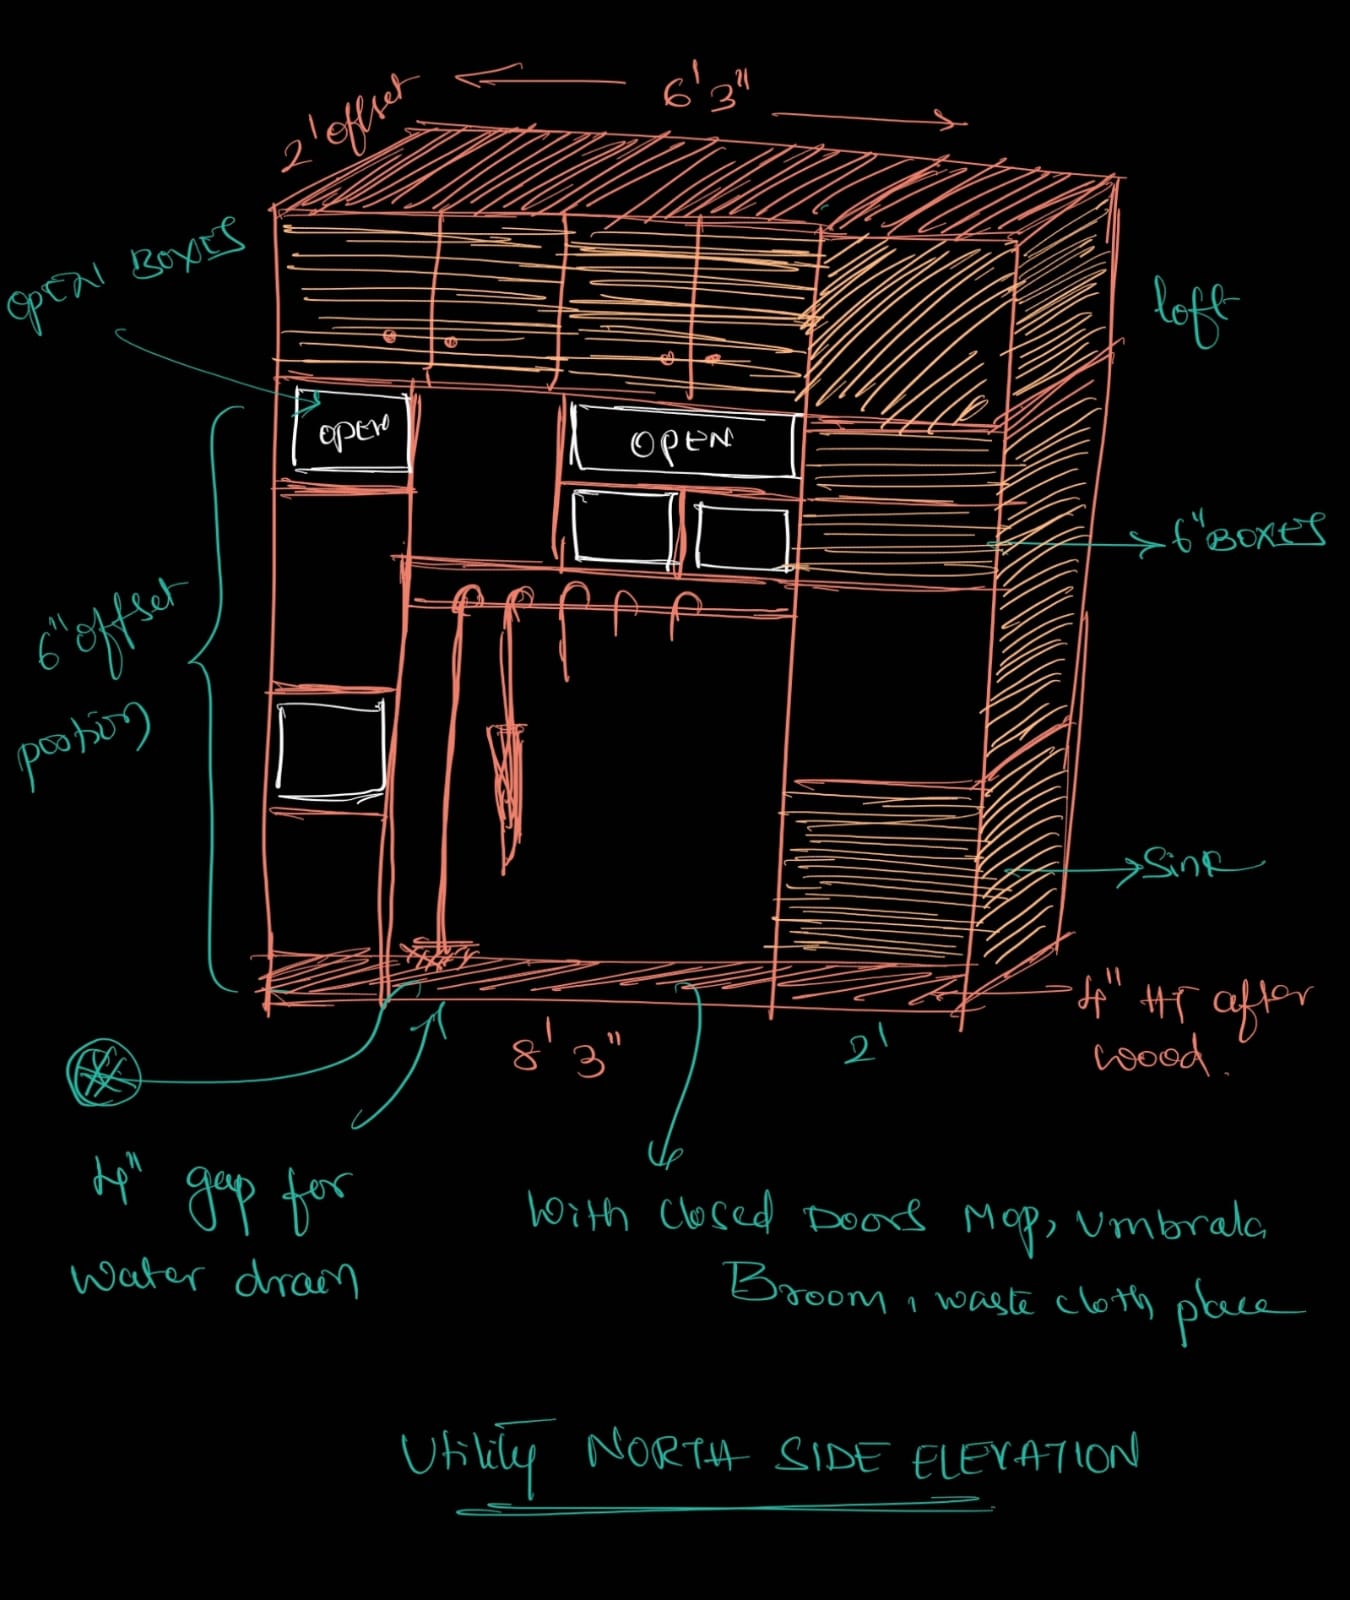 6'3"
2' offset
OPEN BOXES
loft
OPEN
OPEN
6" BOXES
6" offset
portion
Sink
4" HT after
wood.
8' 3"
2'
4" gap for
water drain
With closed Doors Mop, Umbrala
Broom, waste cloth place
Utility NORTH SIDE ELEVATION